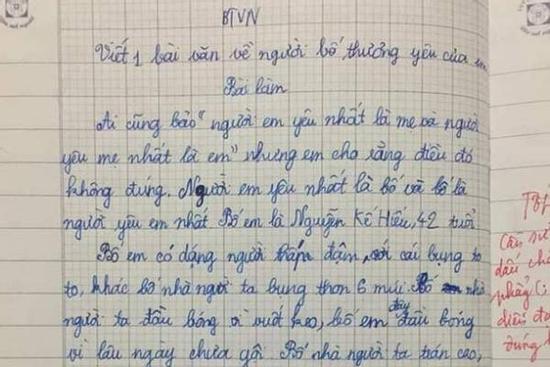 BTVN
Viết 1 bài văn về người bố thương yêu của em
Bài làm
Ai cũng bảo "người em yêu nhất là mẹ và người
yêu mẹ nhất là em" nhưng em cho rằng điều đó
không đúng. Người em yêu nhất là bố và bố là
người yêu em nhất Bố em là Nguyễn Kế Hiếu, 42 tuổi
Bố em có dáng người thấp đậm, với cái bụng to
to, khác bố nhà người ta bụng thon 6 múi. Bố nhà
người ta đầu bóng vì vuốt keo, bố em đầy đầu bóng
vì lâu ngày chưa gội. Bố nhà người ta trán cao,
Câu
dấu
phẩy
điều
đúng